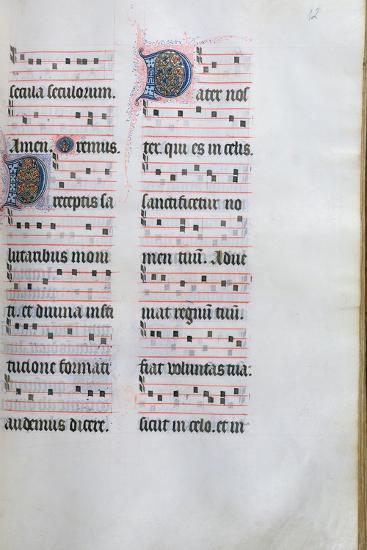 12
secula seculorum.
Amen. Oremus
Preceptis sa
lutaribus moni
ti. et diuina insti
tucione formati
audemus dicere.
Pater nos
ter qui es in celis.
sanctificetur no
men tuū. Adue
niat regnū tuū.
fiat voluntas tua:
sicut in celo. et in